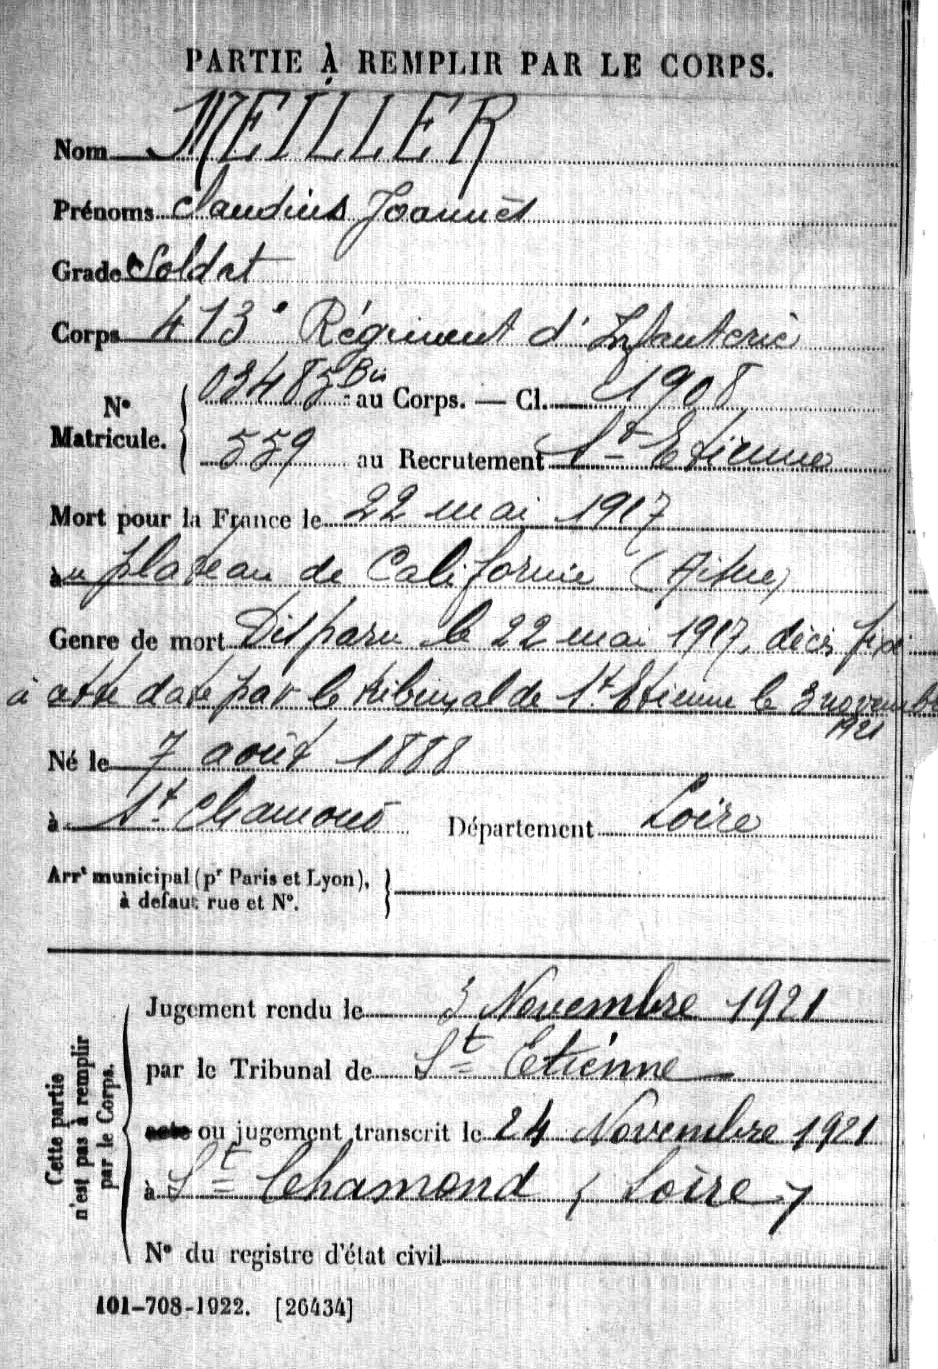 PARTIE À REMPLIR PAR LE CORPS.
Nom MEILLER
Prénoms Claudius Joannès
Grade Soldat
Corps 413e Régiment d'Infanterie
N° Matricule. 03485 Bis au Corps. — Cl. 1908
559 au Recrutement St Etienne
Mort pour la France le 22 mai 1917
au plateau de Californie (Aisne)
Genre de mort Disparu le 22 mai 1917, décès fixé
à cette date par le tribunal de St Etienne le 3 novembre
1921
Né le 7 août 1888
à St Chamond Département Loire
Arrt municipal (pr Paris et Lyon),
à defaut rue et N°.
Cette partie n'est pas à remplir par le Corps.
Jugement rendu le 3 Novembre 1921
par le Tribunal de St Etienne
acte ou jugement transcrit le 24 Novembre 1921
à St Chamond (Loire)
N° du registre d'état civil
101-708-1922. [26434]